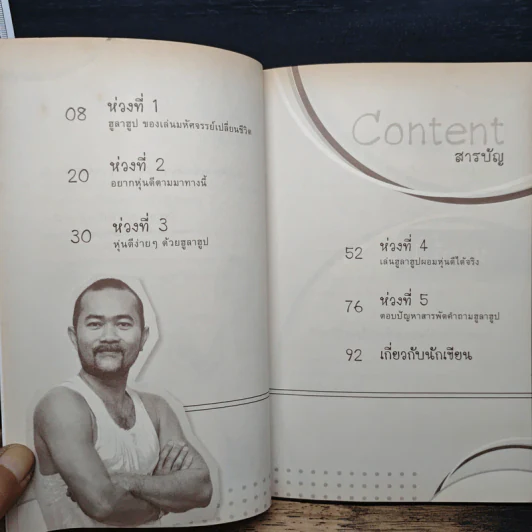 08 ห่วงที่ 1
ฮูลาฮูป ของเล่นมหัศจรรย์เปลี่ยนชีวิต
20 ห่วงที่ 2
อยากหุ่นดีตามมาทางนี้
30 ห่วงที่ 3
หุ่นดีง่ายๆ ด้วยฮูลาฮูป
Content
สารบัญ
52 ห่วงที่ 4
เล่นฮูลาฮูปผอมหุ่นดีได้จริง
76 ห่วงที่ 5
ตอบปัญหาสารพัดคำถามฮูลาฮูป
92 เกี่ยวกับนักเขียน